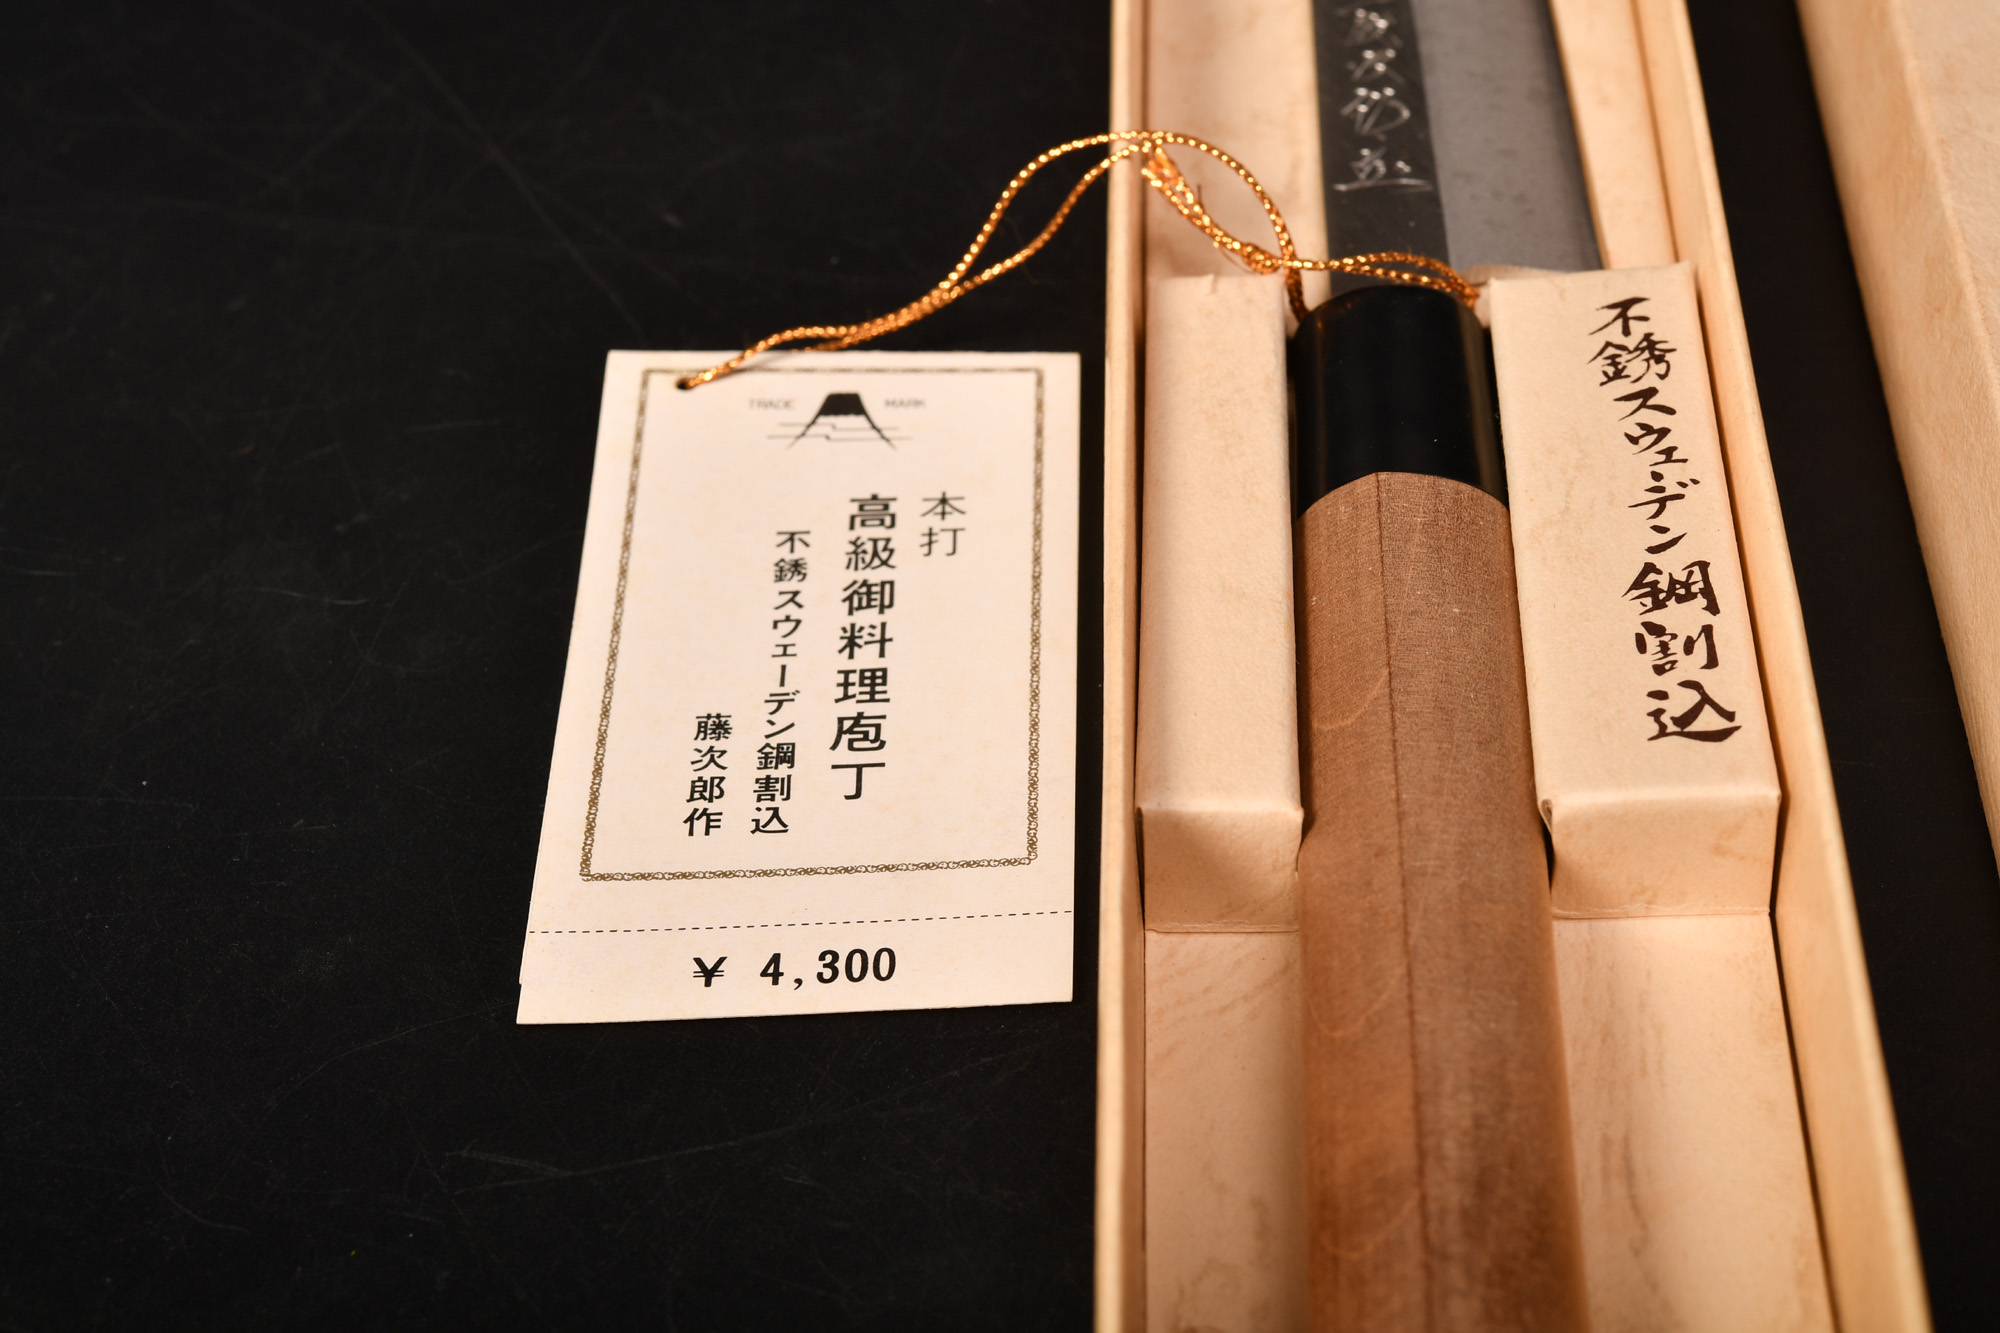 TRADE MARK
本打
高級御料理庖丁
不銹スウェーデン鋼割込
藤次郎作
¥ 4,300
次郎
不銹スウェーデン鋼割込